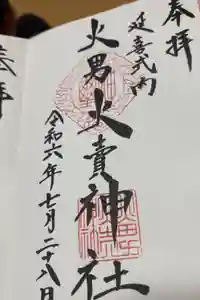 奉拝
延喜式内
火男火賣神社
令和六年七月二十八日
奉拝